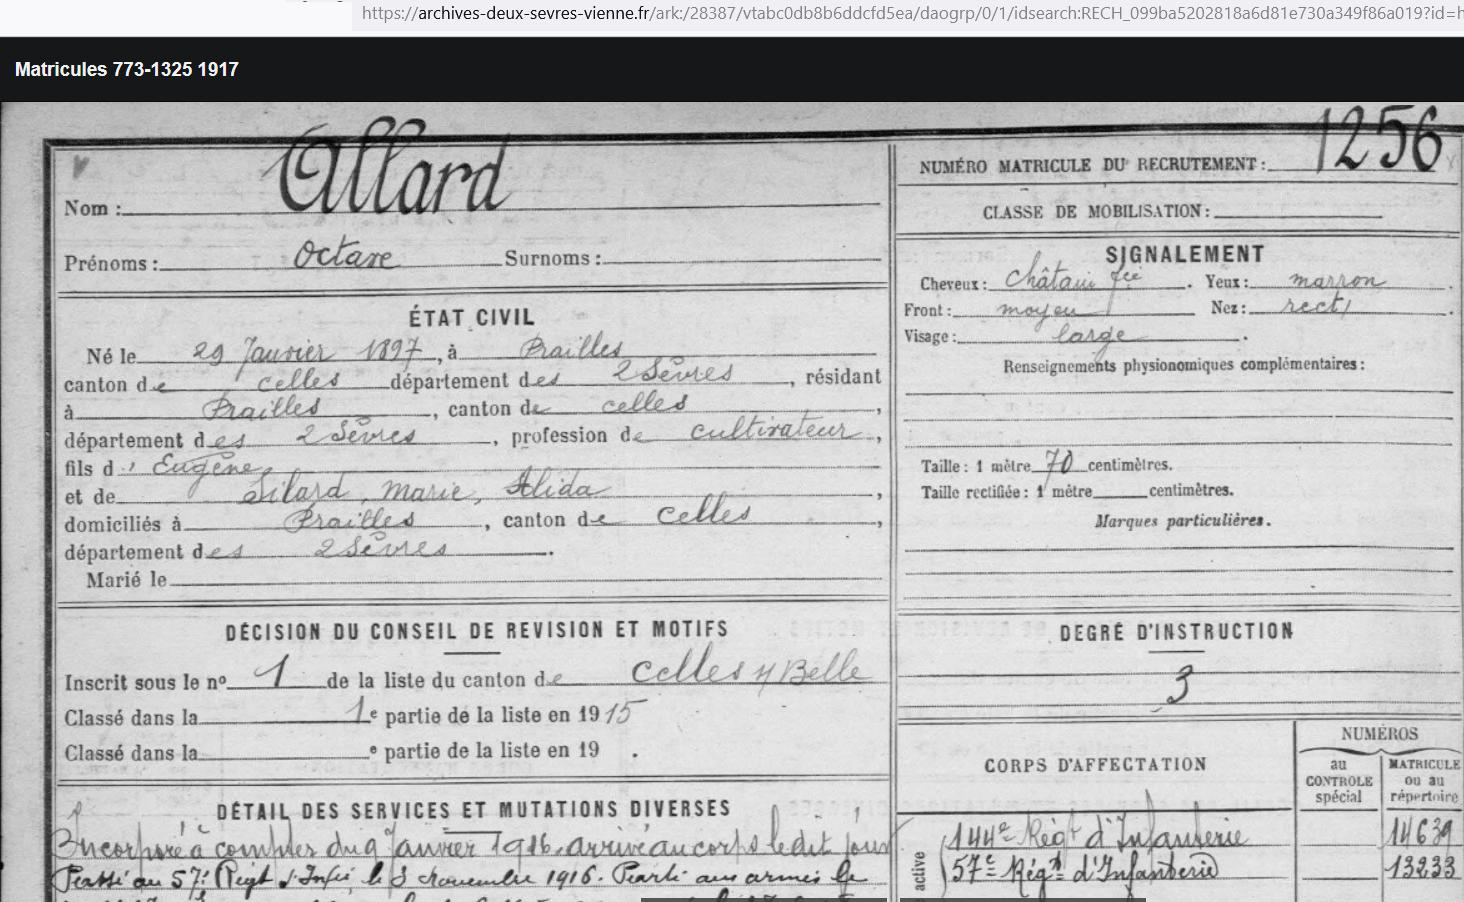 https://archives-deux-sevres-vienne.fr/ark:/28387/vtabc0db8b6ddcfd5ea/daogrp/0/1/idsearch:RECH_099ba5202818a6d81e730a349f86a019?id=h
Matricules 773-1325 1917
Nom : Allard
Prénoms : Octave Surnoms :
ÉTAT CIVIL
Né le 29 Janvier 1897, à Prailles
canton de celles département des 2 Sèvres, résidant
à Prailles, canton de celles,
département des 2 Sèvres, profession de cultivateur,
fils d' Eugène
et de Silard, Marie, Alida,
domiciliés à Prailles, canton de celles,
département des 2 Sèvres.
Marié le
DÉCISION DU CONSEIL DE REVISION ET MOTIFS
Inscrit sous le nº 1 de la liste du canton de Celles s/ Belle
Classé dans la 1e partie de la liste en 1915
Classé dans la e partie de la liste en 19 .
DÉTAIL DES SERVICES ET MUTATIONS DIVERSES
Incorporé à compter du 9 Janvier 1916, arrivé au corps le dit jour
Passé au 57e Régt d'Infie le 3 Novembre 1916. Parti aux armées le
NUMÉRO MATRICULE DU RECRUTEMENT : 1256
CLASSE DE MOBILISATION :
SIGNALEMENT
Cheveux : châtain fcé. Yeux : marron.
Front : moyen Nez : rect.
Visage : large.
Renseignements physionomiques complémentaires :
Taille : 1 mètre 70 centimètres.
Taille rectifiée : 1 mètre centimètres.
Marques particulières.
DEGRÉ D'INSTRUCTION
3
CORPS D'AFFECTATION
NUMÉROS
au CONTROLE spécial
MATRICULE ou au répertoire
active
144e Régt d'Infanterie 14639
57e Régt d'Infanterie 13233